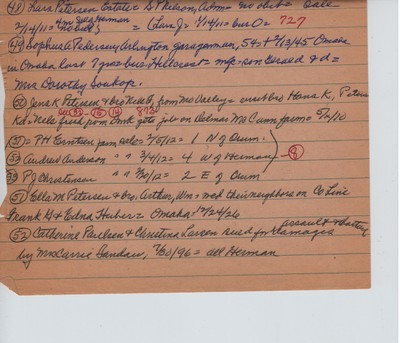 (48) Lars Petersen Estate = S P Nelson, Adm = no obit = Sale =
2/14/11 = Hm Dug Herman = (Lars J = 1/14/11 = bur O = 727
(49) Sophus A Pedersen, Arlington garageman, 54, + 2/13/45 Omaha
in Omaha last 7 yrs = bur Hillcrest = mfe = son Gerald & d =
Mrs Dorothy Soukop.
(50) Jens K Petersen & bro Nels P, from Mo Valley = visit bro Hans K, Peters
Kd. Nels fresh from Dmk gets job on Delmas McCunn farm = 5/2/10
= PH farm sale = 2/15/12 = 1 N of Orum.
Andrew Anderson " " 3/4/12 = 4 W of Herman = (8)
P J Christensen " " 10/12 = 2 E of Orum
(51) Ella M Petersen & bro, Arthur, Wm = med their neighbors on Co Line
Frank G & Edna Huber = Omaha = 12/24/26
(52) Catherine Paulsen & Christina Larsen sued for damages assault & battery
by Mrs Carrie 7/30/96 = all Herman